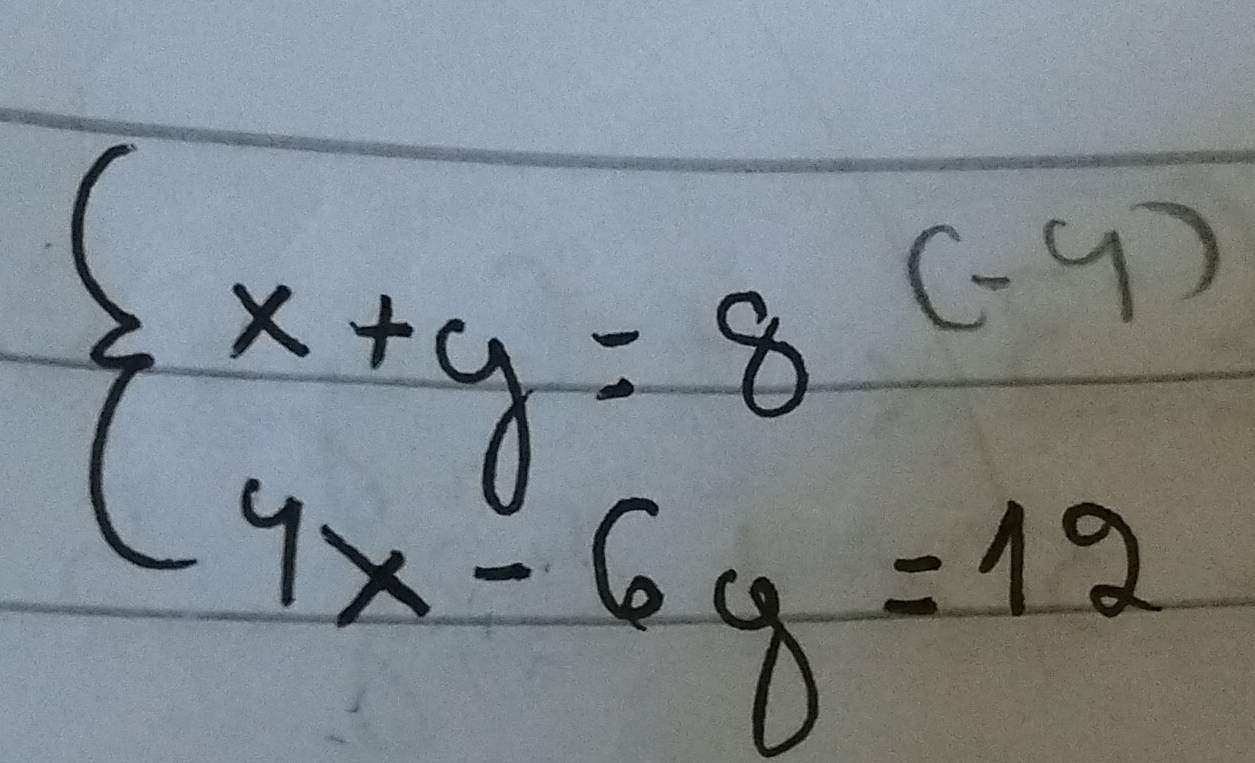 x + y = 8 (-4)
4x - 6y = 12